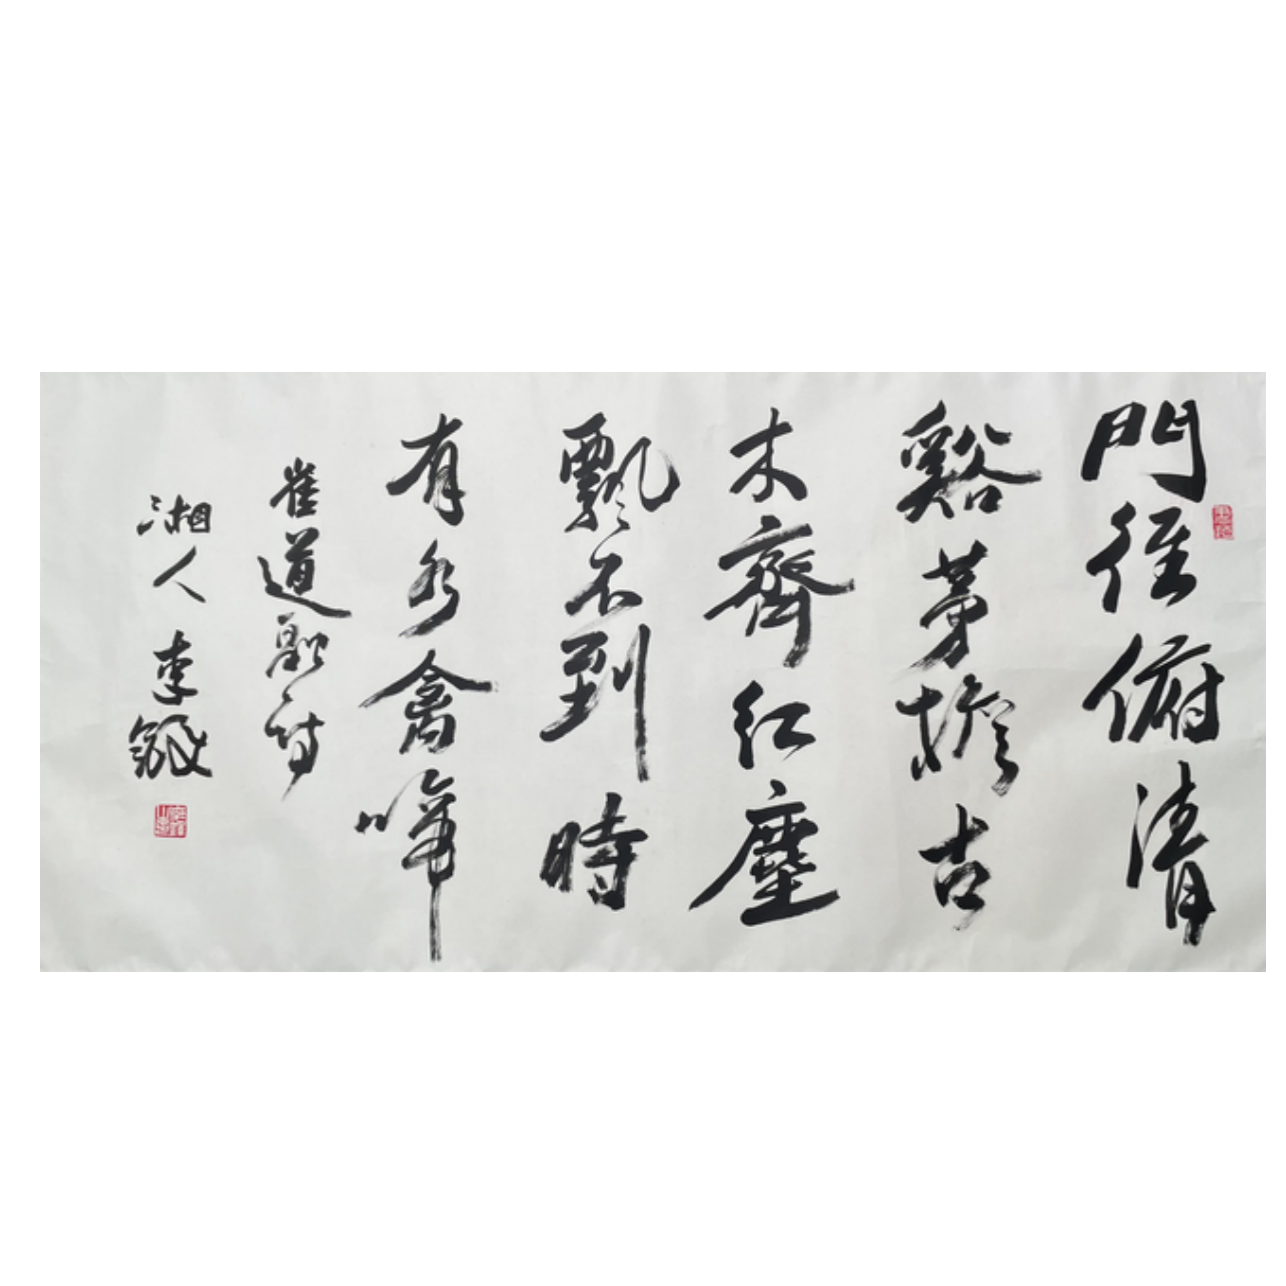 門徑俯清
谿茅檐古
木齊紅塵
飄不到時
有水禽啼
崔道融詩
湘人 李